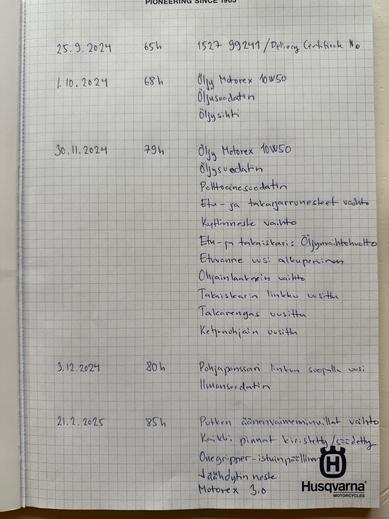 PIONEERING SINCE 1903
25.9.2024 65h 1527 99241 / Delivery Certificate No
1.10.2024 68h Öljy Motorex 10W50
Öljysuodatin
Öljysihti
30.11.2024 79h Öljy Motorex 10W50
Öljysuodatin
Polttoainesuodatin
Etu- ja takajarrunesteet vaihto
Kytkinneste vaihto
Etu- ja takaiskaris Öljynvaihtohuolto
Etuvanne uusi alkuperäinen
Ohjainlaakerin vaihto
Takaiskarin linkku uusittu
Takarengas uusittu
Ketjunohjain uusittu
3.12.2024 80h Pohjapanssari linkun suojalla uusi
Ilmansuodatin
21.2.2025 85h Putken äänenvaimenninvillat vaihto
Kaikki pinnat kiristetty/säädetty
Onegripper-istuinpäällinen
Jäähdytinneste
Motorex 3.0
Husqvarna
MOTORCYCLES